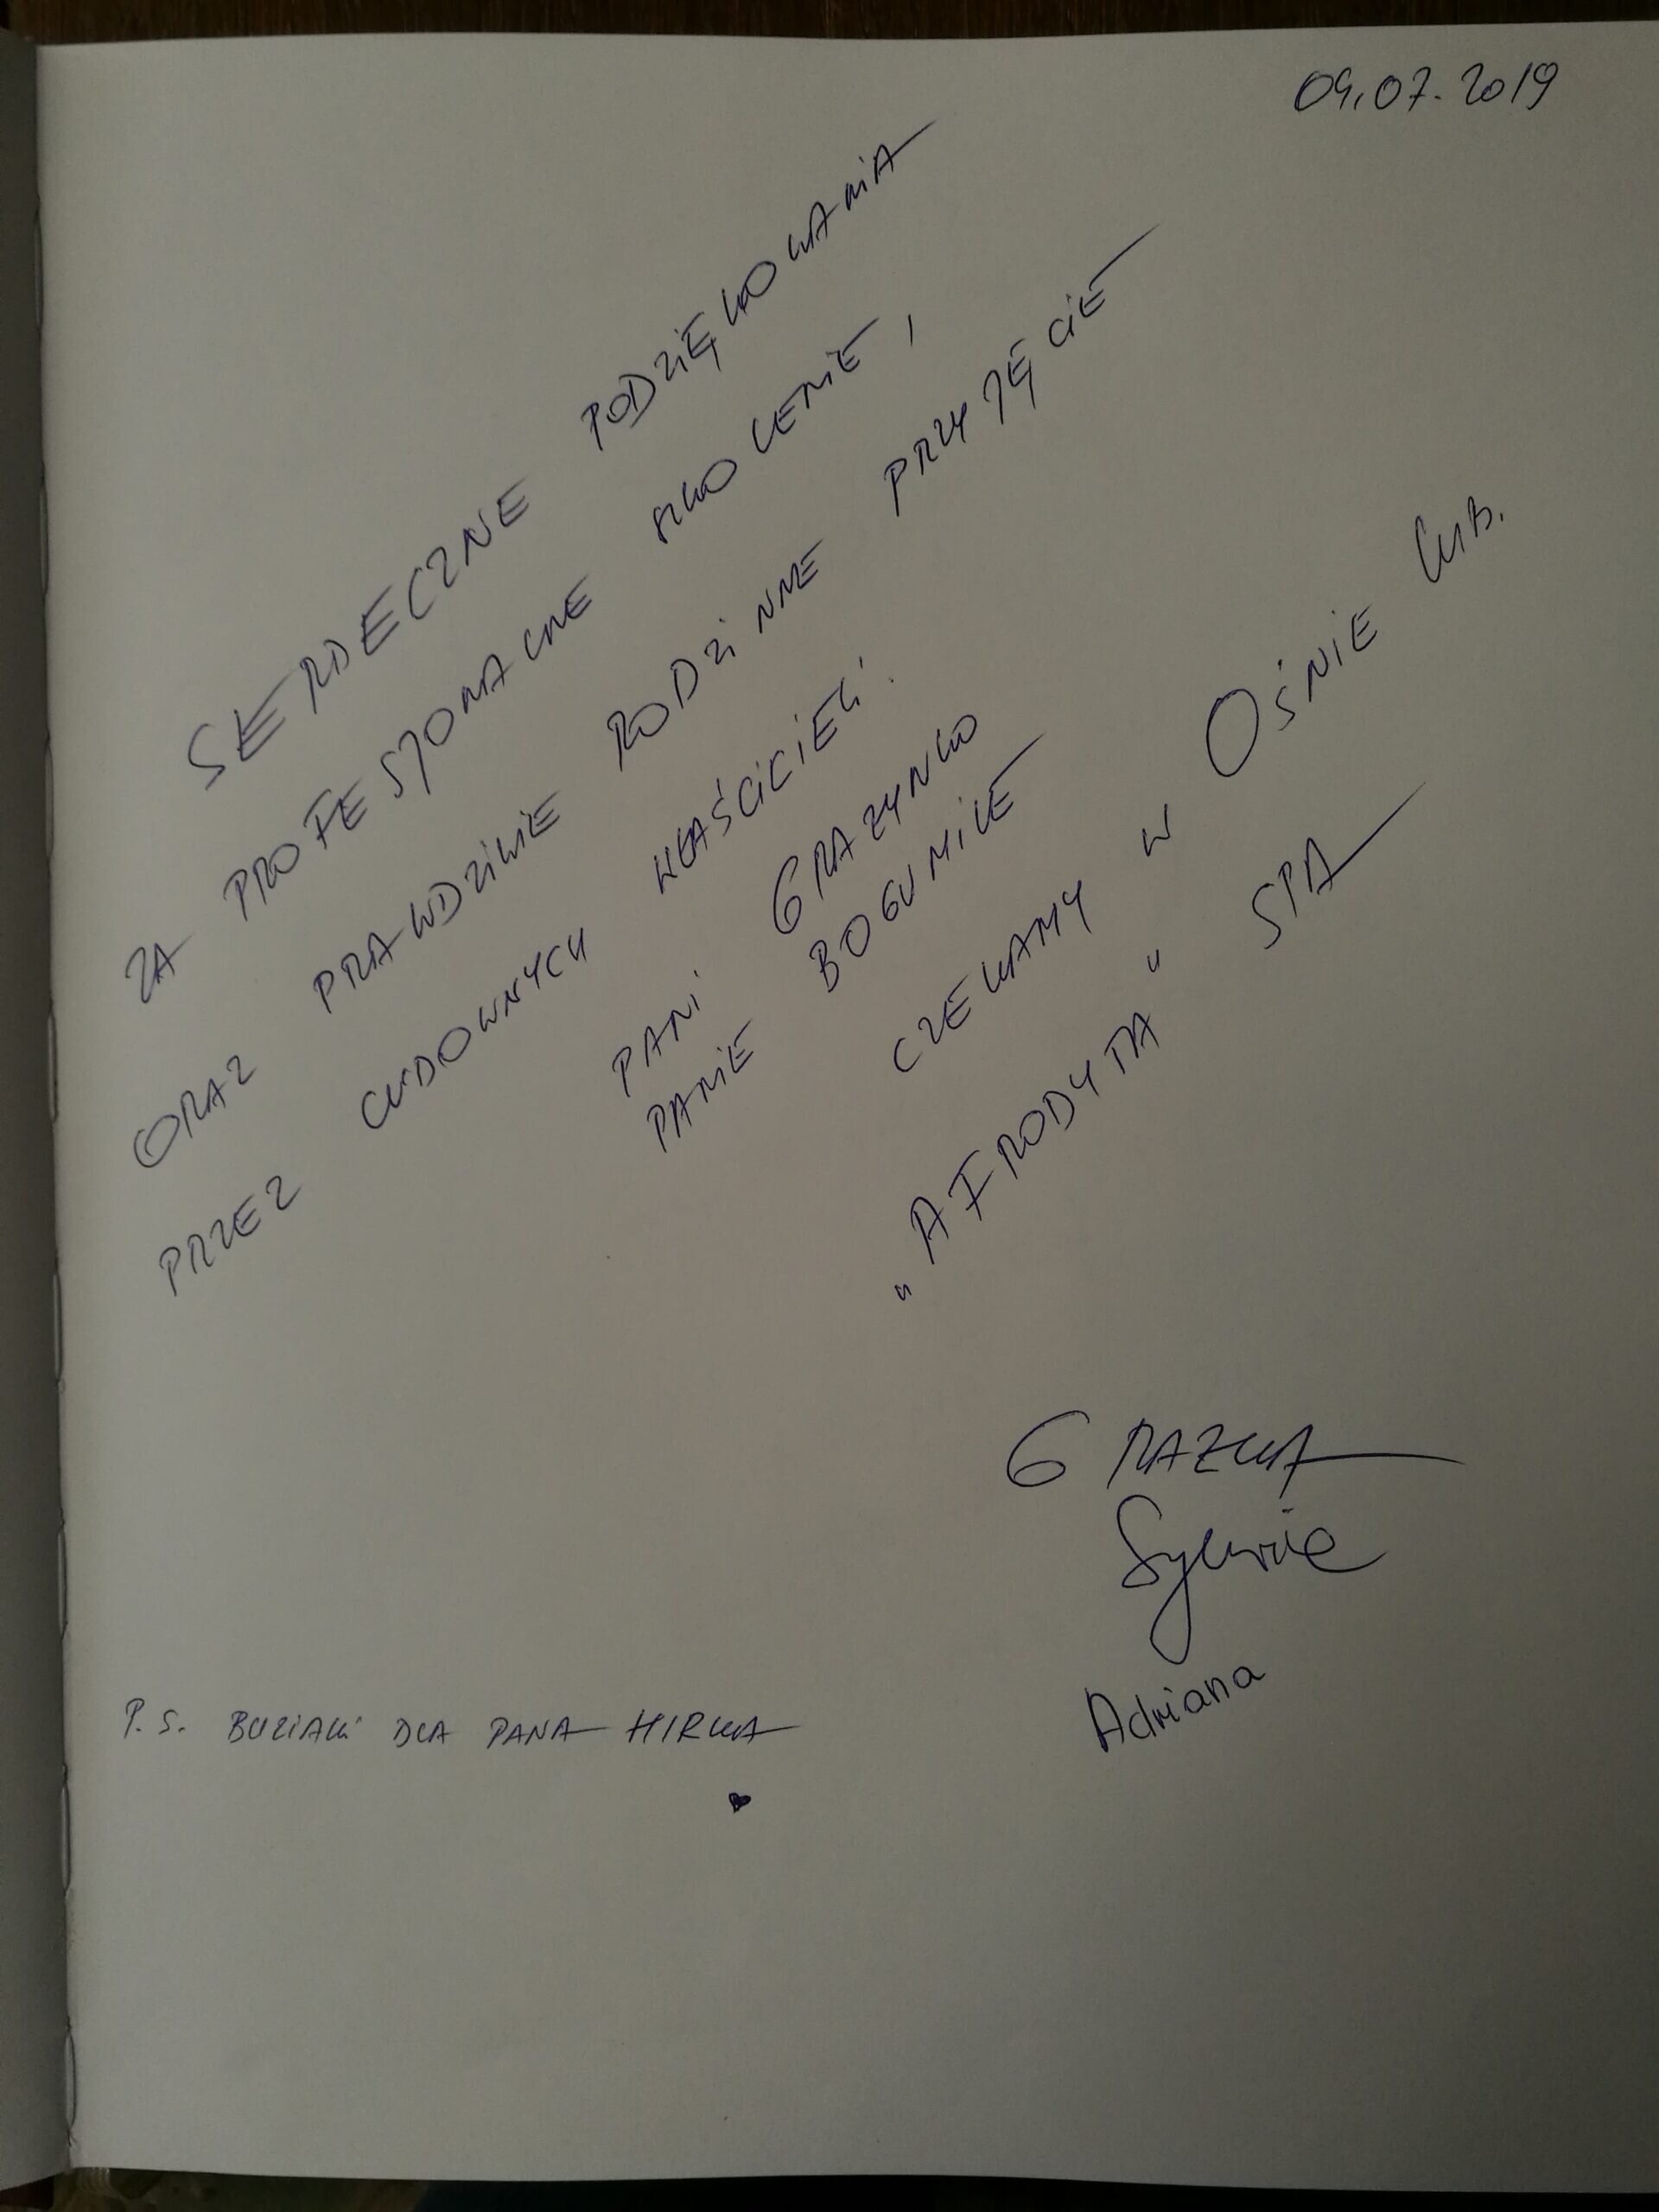 09.07.2019
SERDECZNE PODZIĘKOWANIA
ZA PROFESJONALNE SZKOLENIE,
ORAZ PRAWDZIWIE RODZINNE PRZYJĘCIE
PRZEZ CUDOWNYCH WŁAŚCICIELI.
PANI GRAZYNKO
PANIE BOGUMILE
CZEKAMY W OŚNIE LUB.
"AFRODYTA" SPA
GRAŻKA
Sylwia
Adriana
P.S. BUZIAKI DLA PANA MIRKA